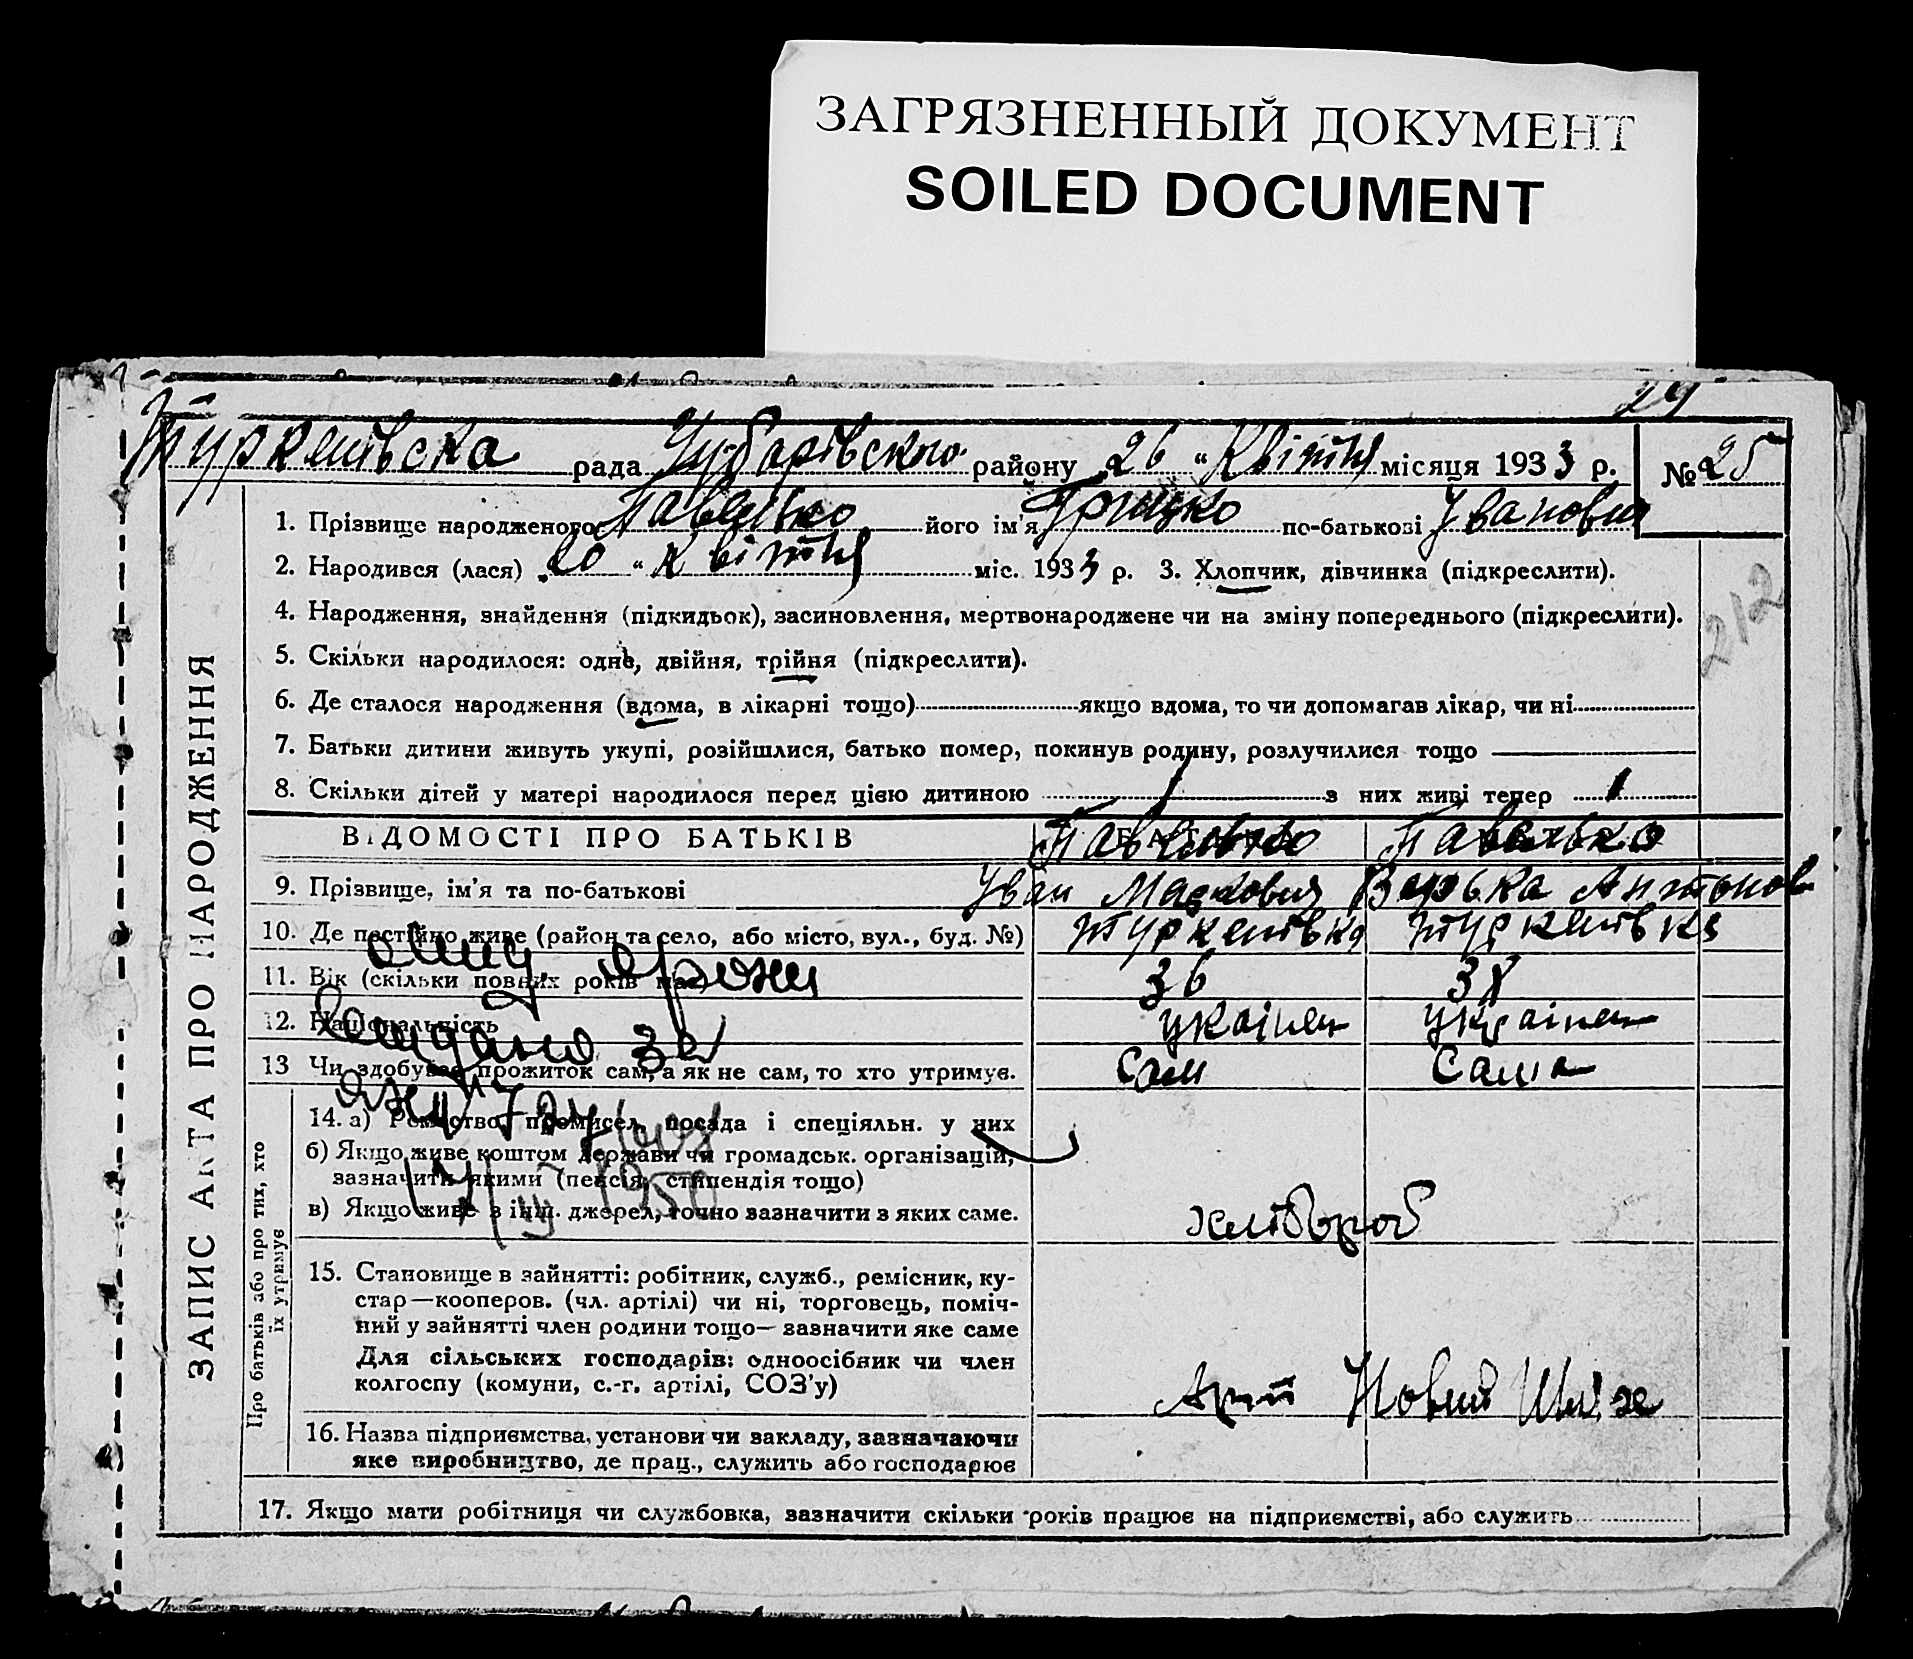 ЗАГРЯЗНЕННЫЙ ДОКУМЕНТ
SOILED DOCUMENT
29
Туркенівська рада Чубарівського району „26“ Квітня місяця 1933 р. № 25
1. Прізвище народженого Павленко його ім'я Грицко по-батькові Іванович
2. Народився (лася) „20“ Квітня міс. 1933 р. 3. Хлопчик, дівчинка (підкреслити).
4. Народження, знайдення (підкидьок), засиновлення, мертвонароджене чи на зміну попереднього (підкреслити).
212
5. Скільки народилося: одне, двійня, трійня (підкреслити).
6. Де сталося народження (вдома, в лікарні тощо) якщо вдома, то чи допомагав лікар, чи ні
7. Батьки дитини живуть укупі, розійшлися, батько помер, покинув родину, розлучилися тощо
8. Скільки дітей у матері народилося перед цією дитиною 1 з них живі тепер 1
ВІДОМОСТІ ПРО БАТЬКІВ Павленко Павленко
9. Прізвище, ім'я та по-батькові Іван Маркович Варька Антонов
10. Де постійно живе (район та село, або місто, вул., буд. №) Туркенівка Туркенівка
11. Вік (скільки повних років має) 36 38
12. Національність українец українец
13 Чи здобуває прожиток сам, а як не сам, то хто утримує. Сам Сама
14. а) Ремество, промисел, посада і спеціяльн. у них
б) Якщо живе коштом держави чи громадськ. організацій,
зазначити якими (пенсія, стипендія тощо)
17/III 1950
в) Якщо живе з інш. джерел, точно зазначити з яких саме. хлібороб
15. Становище в зайнятті: робітник, служб., ремісник, ку-
стар—кооперов. (чл. артілі) чи ні, торговець, поміч-
ний у зайнятті член родини тощо— зазначити яке саме
Для сільських господарів: одноосібник чи член
колгоспу (комуни, с.-г. артілі, СОЗ'у) Новий Шлях
16. Назва підприємства, установи чи закладу, зазначаючи
яке виробництво, де прац., служить або господарює
17. Якщо мати робітниця чи службовка, зазначити скільки років працює на підприємстві, або служить
ЗАПИС АКТА ПРО НАРОДЖЕННЯ
Про батьків або про тих, хто
їх утримує